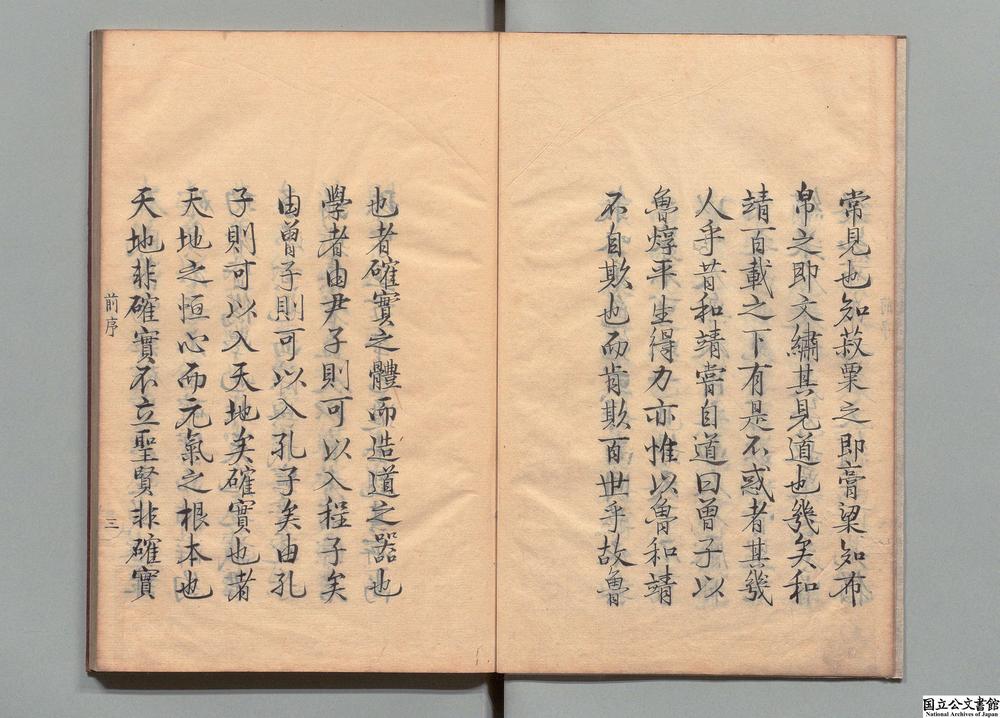 常見也知菽粟之即膏粱知布
帛之即文繡其見道也幾矣和
靖百載之下有是不惑者其幾
人乎昔和靖嘗自道曰曾子以
魯焞平生得力亦惟以魯和靖
不自欺也而肯欺百世乎故魯
也者確實之體而造道之器也
學者由尹子則可以入程子矣
由曾子則可以入孔子矣由孔
子則可以入天地矣確實也者
天地之恒心而元氣之根本也
天地非確實不立聖賢非確實
前序
三
国立公文書館
National Archives of Japan